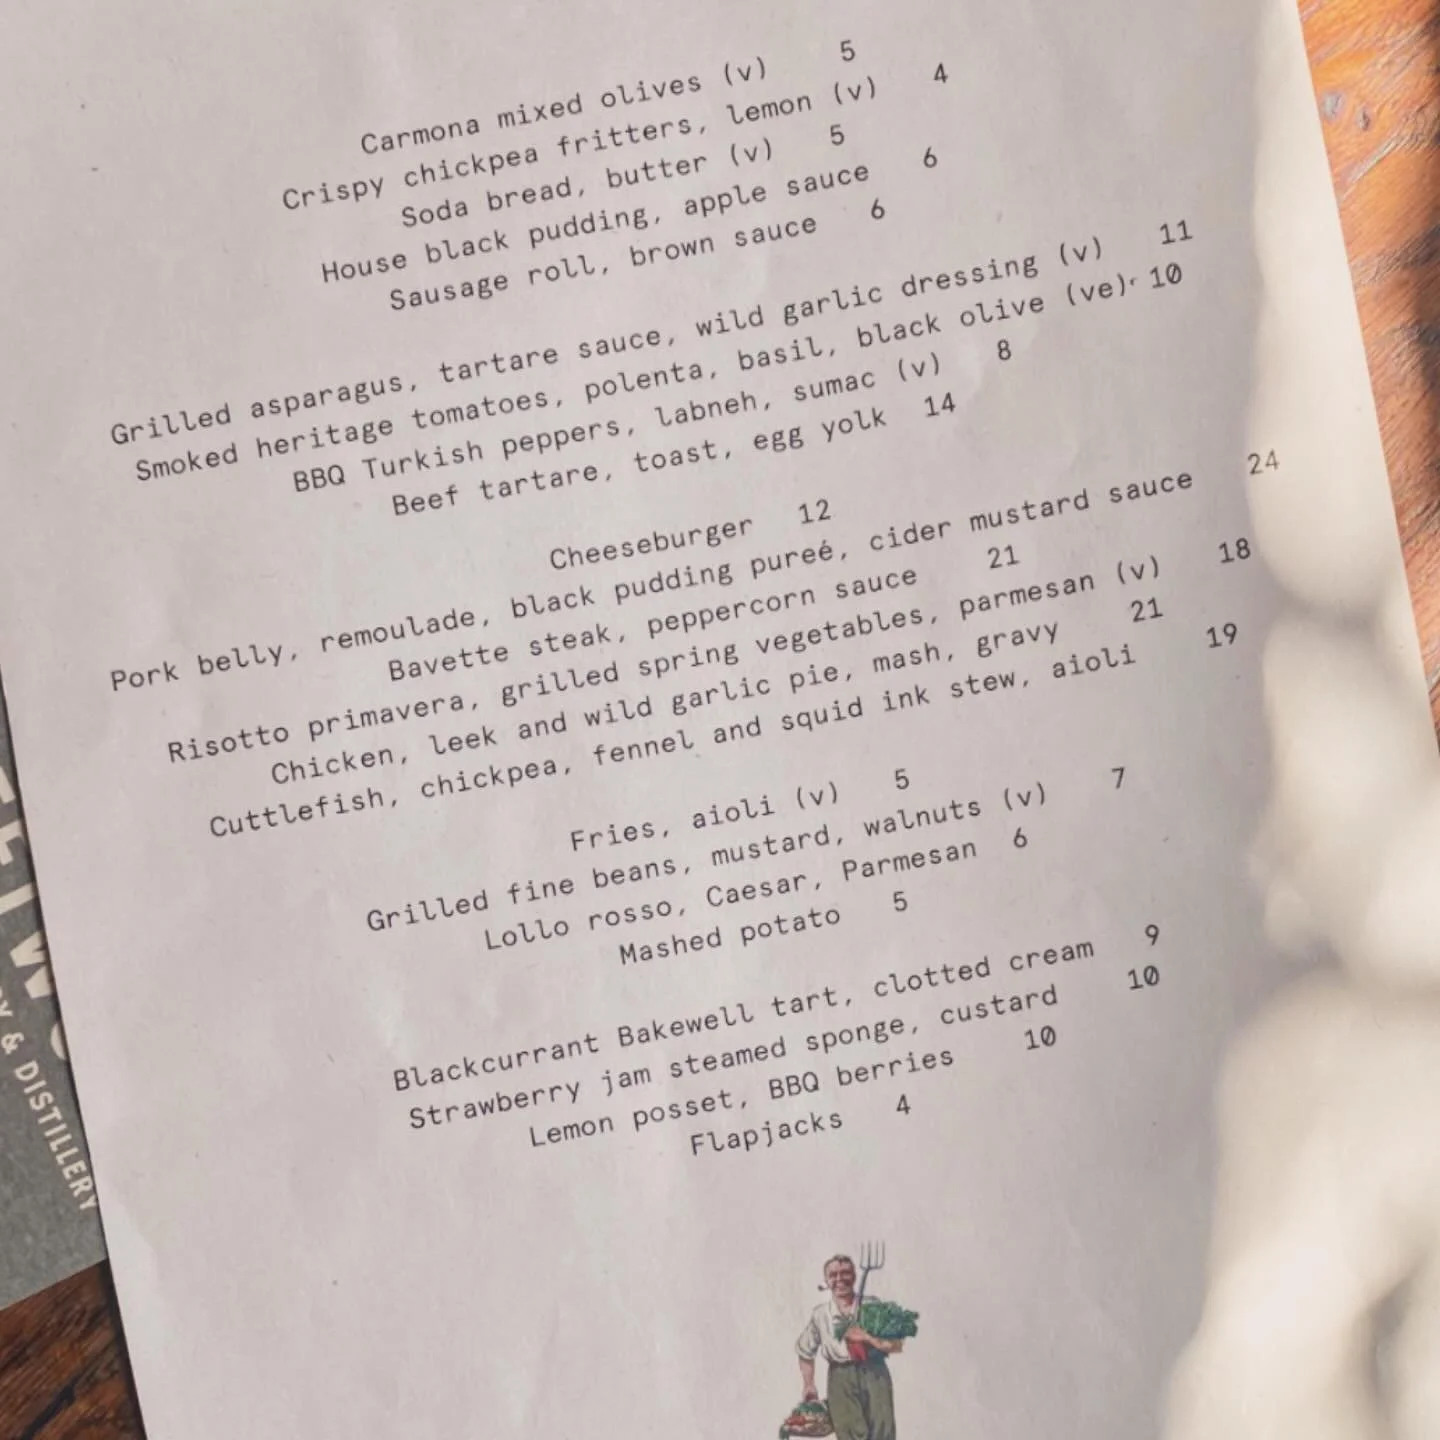 Carmona mixed olives (v) 5
Crispy chickpea fritters, lemon (v) 4
Soda bread, butter (v) 5
House black pudding, apple sauce 6
Sausage roll, brown sauce 6
Grilled asparagus, tartare sauce, wild garlic dressing (v) 11
Smoked heritage tomatoes, polenta, basil, black olive (ve) 10
BBQ Turkish peppers, labneh, sumac (v) 8
Beef tartare, toast, egg yolk 14
Cheeseburger 12
Pork belly, remoulade, black pudding pureé, cider mustard sauce 24
Bavette steak, peppercorn sauce 21
Risotto primavera, grilled spring vegetables, parmesan (v) 18
Chicken, leek and wild garlic pie, mash, gravy 21
Cuttlefish, chickpea, fennel and squid ink stew, aioli 19
Fries, aioli (v) 5
Grilled fine beans, mustard, walnuts (v) 7
Lollo rosso, Caesar, Parmesan 6
Mashed potato 5
Blackcurrant Bakewell tart, clotted cream 9
Strawberry jam steamed sponge, custard 10
Lemon posset, BBQ berries 10
Flapjacks 4
& DISTILLERY